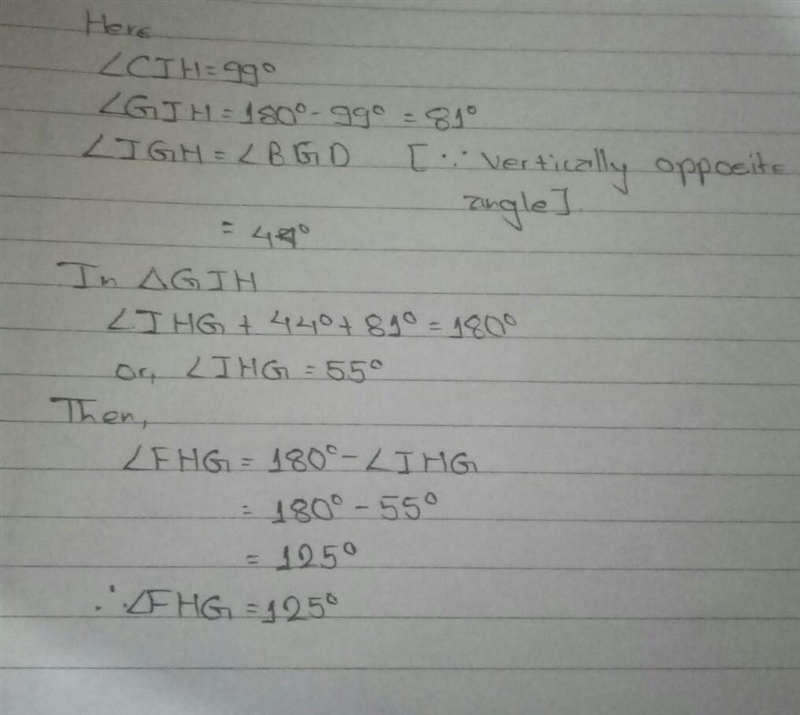 Here
∠CIH=99°
∠GIH=180°-99°=81°
∠IGH=∠BGD [∵ vertically opposite
angle]
= 44°
In △GIH
∠IHG + 44°+ 81°=180°
or, ∠IHG = 55°
Then,
∠FHG = 180°-∠IHG
= 180°-55°
= 125°
∴∠FHG =125°